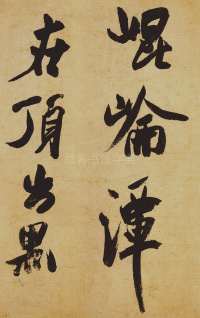 崐崘潭
在頂出黑